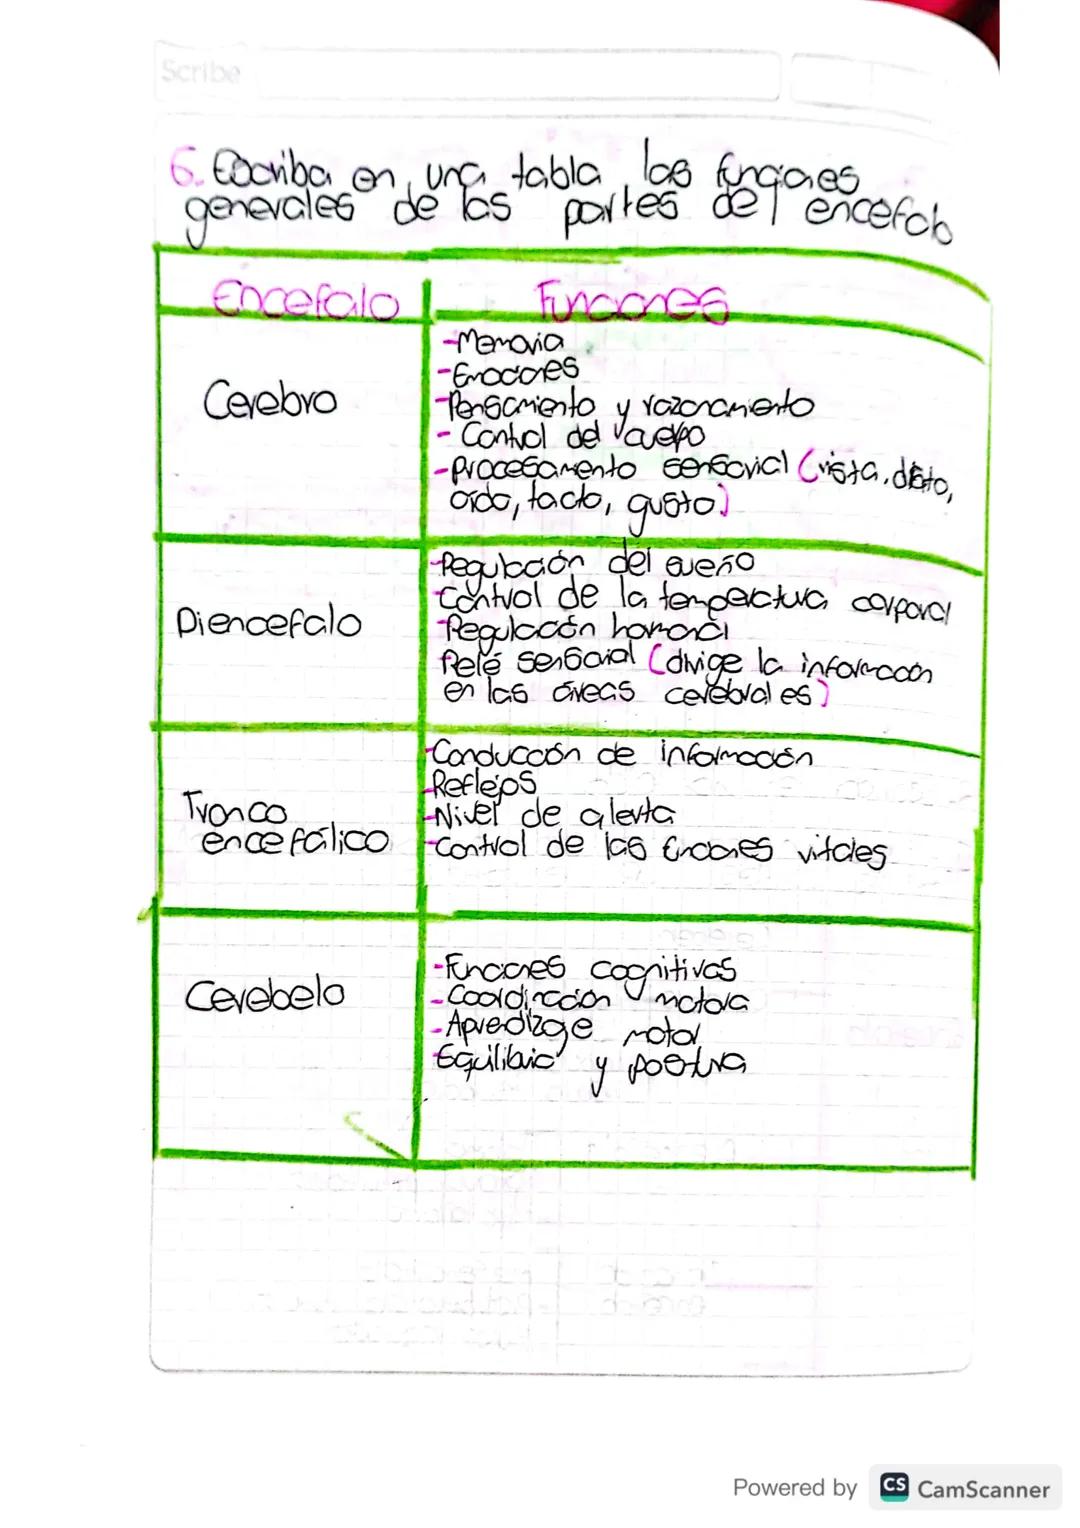 Scribe
6. Escriba en una tabla las funciones
generales de las partes del encefalo
Encefalo
Funciones
Cerebro
-Memoria
-Emociones
-Pensamiento y razonamiento
- Control del cuerpo
-Procesamento sensorial (vista, olfato,
oído, tacto, gusto)
Diencefalo
-Regulación del sueño
-Control de la temperatura corporal
-Regulación hormonal
Relé sensorial (dirige la información
en las áreas cerebrales)
Tronco
encefálico
-Conducción de información
-Reflejos
-Nivel de alerta
-Control de las funciones vitales
Cerebelo
-Funciones cognitivas
-Coordinación motora
-Aprendizaje motor
-Equilibrio y postura
Powered by CS CamScanner